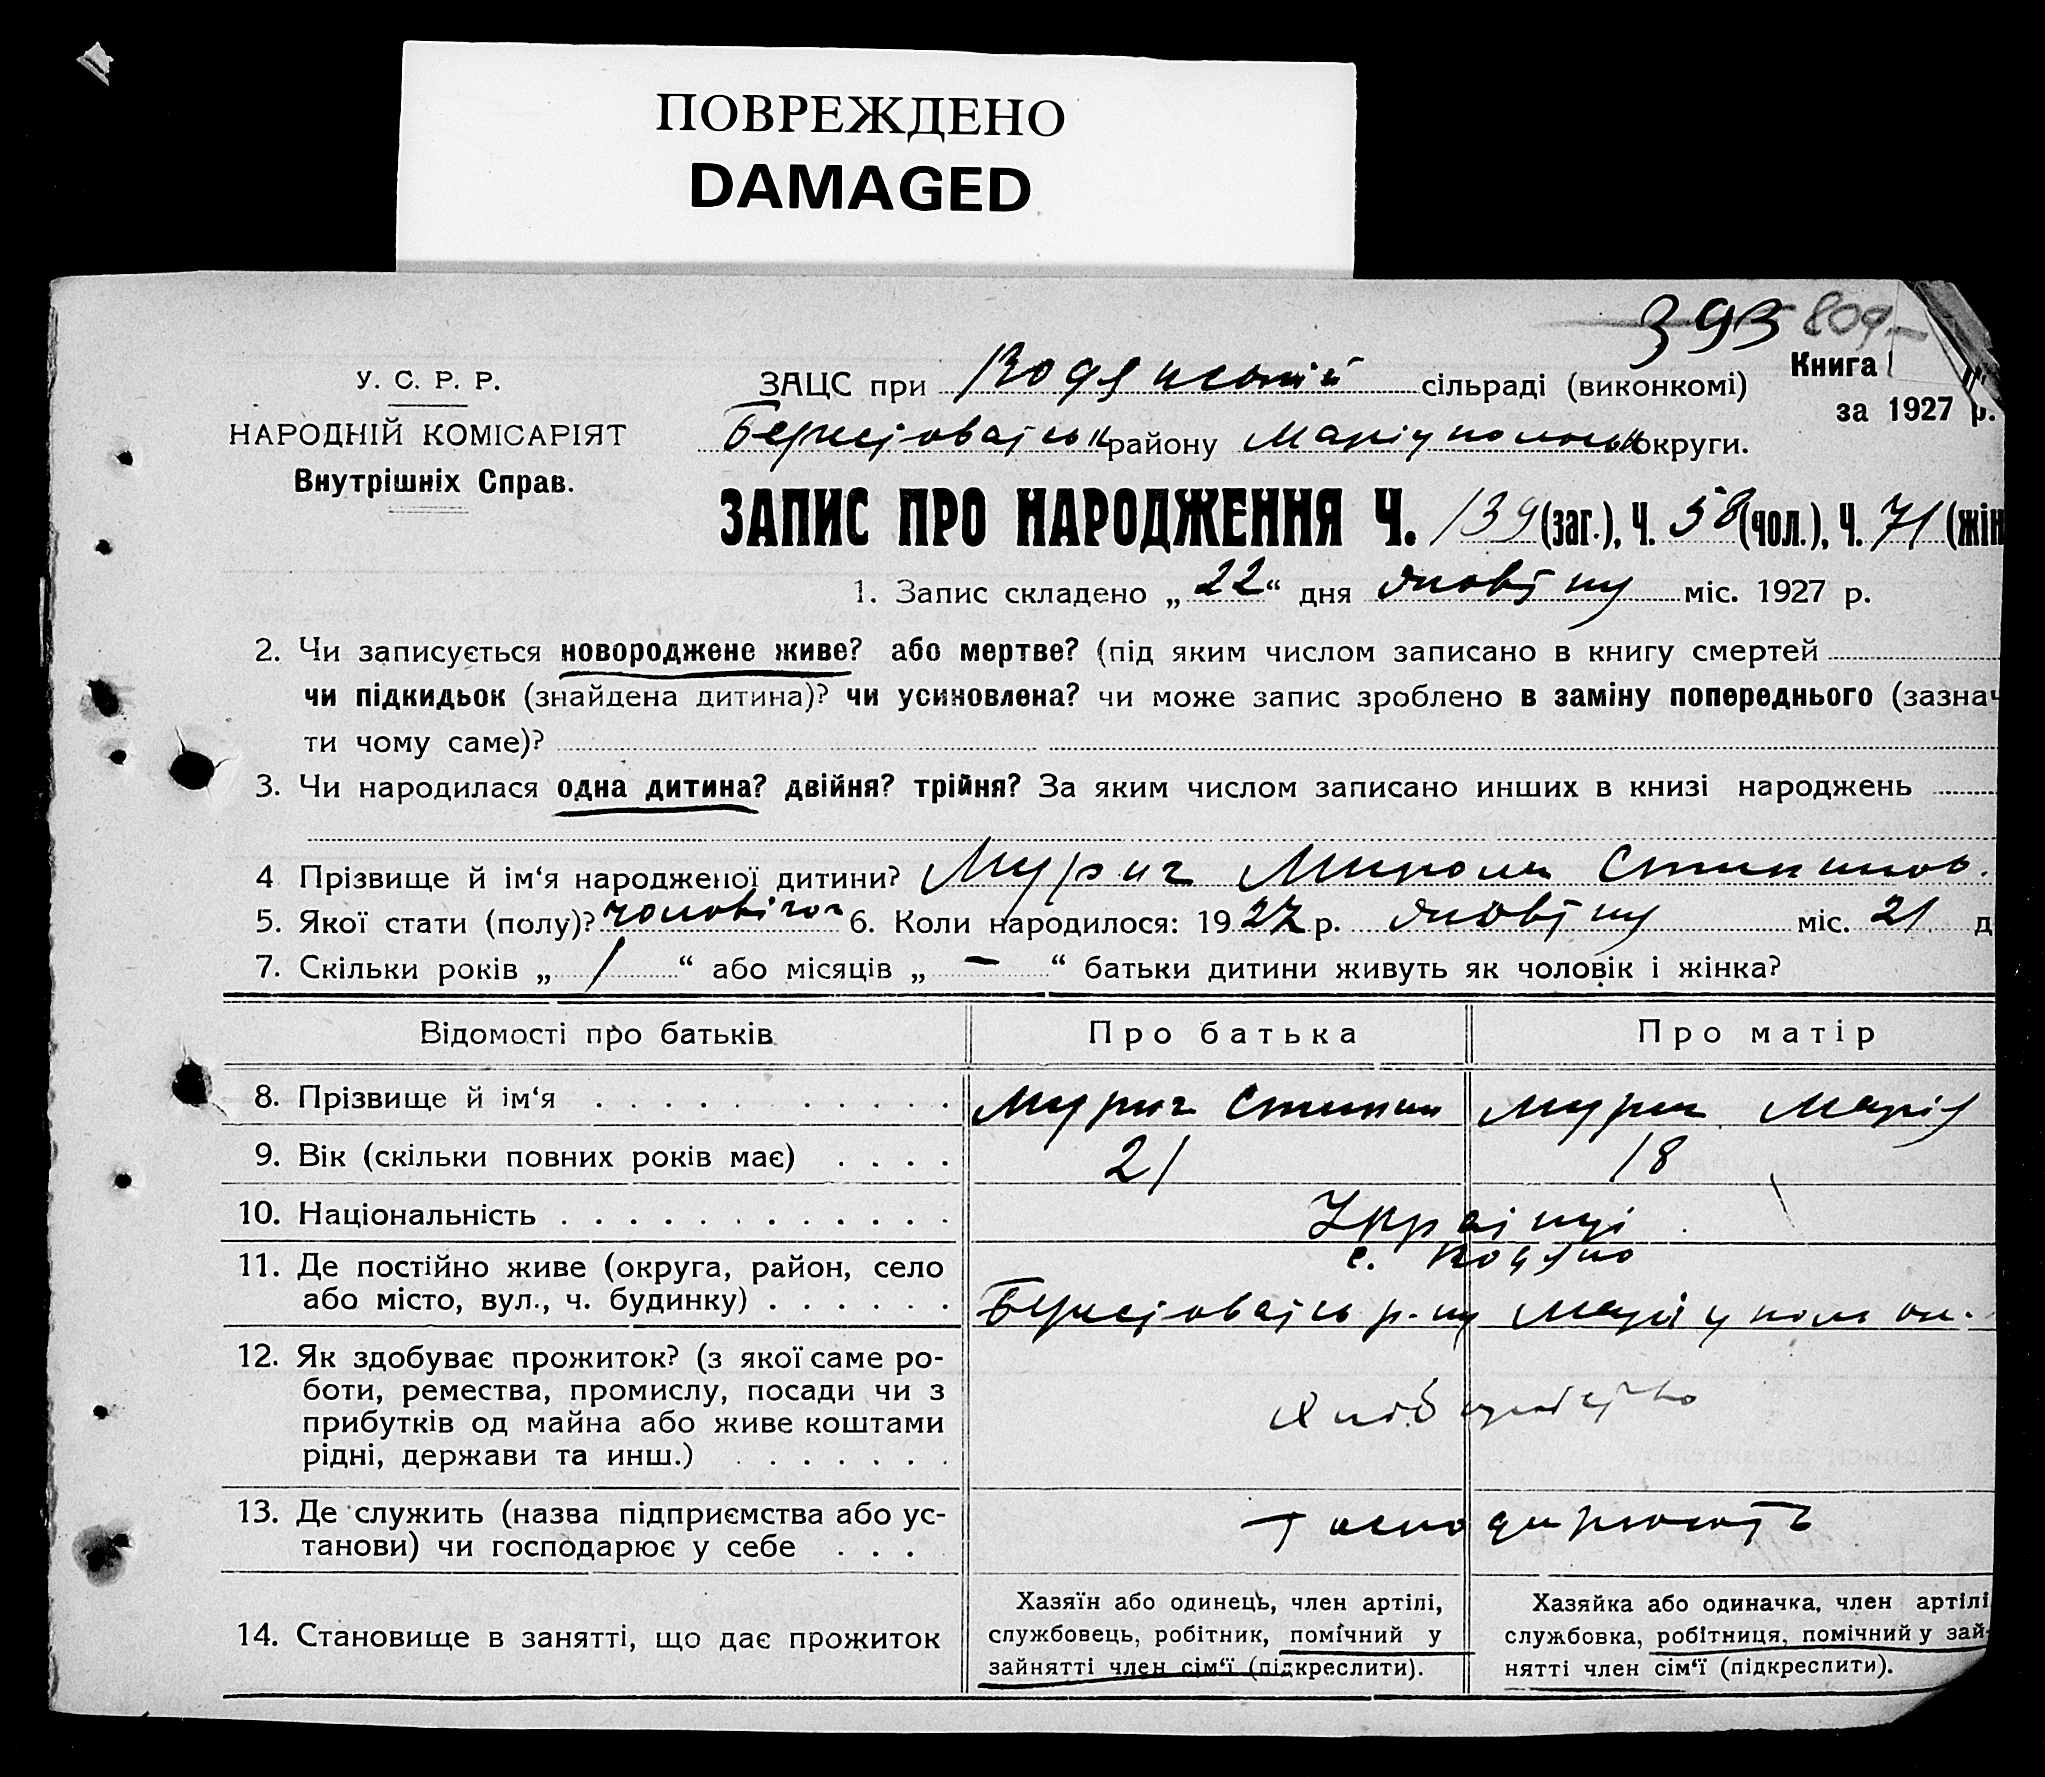 ПОВРЕЖДЕНО
DAMAGED
393 809
У. С. Р. Р.
НАРОДНІЙ КОМІСАРІЯТ
Внутрішніх Справ.
ЗАЦС при Водянській сільраді (виконкомі)
Книга
за 1927 р.
району Маріупольськ округи.
ЗАПИС ПРО НАРОДЖЕННЯ Ч. 139 (заг.), Ч. 58 (чол.), Ч. 71 (жін
1. Запис складено „ 22 “ дня міс. 1927 р.
2. Чи записується новороджене живе? або мертве? (під яким числом записано в книгу смертей
чи підкидьок (знайдена дитина)? чи усиновлена? чи може запис зроблено в заміну попереднього (зазнач
ти чому саме)?
3. Чи народилася одна дитина? двійня? трійня? За яким числом записано инших в книзі народжень
4 Прізвище й ім‘я народженої дитини? Мурич Микола Степанов.
5. Якої стати (полу)? чоловічої 6. Коли народилося: 1927 р. міс. 21 д
7. Скільки років „ 1 “ або місяців „ — “ батьки дитини живуть як чоловік і жінка?
Відомості про батьків Про батька Про матір
8. Прізвище й ім‘я . . . . . . . . . . Мурич Степан Мурич Марія
9. Вік (скільки повних років має) . . . . 21 18
10. Національність . . . . . . . . . . . Українці
11. Де постійно живе (округа, район, село с. Водяно
або місто, вул., ч. будинку) . . . . . . р-ну Маріупол ок.
12. Як здобуває прожиток? (з якої саме ро-
боти, ремества, промислу, посади чи з
прибутків од майна або живе коштами
рідні, держави та инш.) . . . . . . .
13. Де служить (назва підприємства або ус-
танови) чи господарює у себе . . .
14. Становище в занятті, що дає прожиток
Хазяїн або одинець, член артілі,
службовець, робітник, помічний у
зайнятті член сім‘ї (підкреслити).
Хазяйка або одиначка, член артілі
службовка, робітниця, помічний у зай-
нятті член сім‘ї (підкреслити).